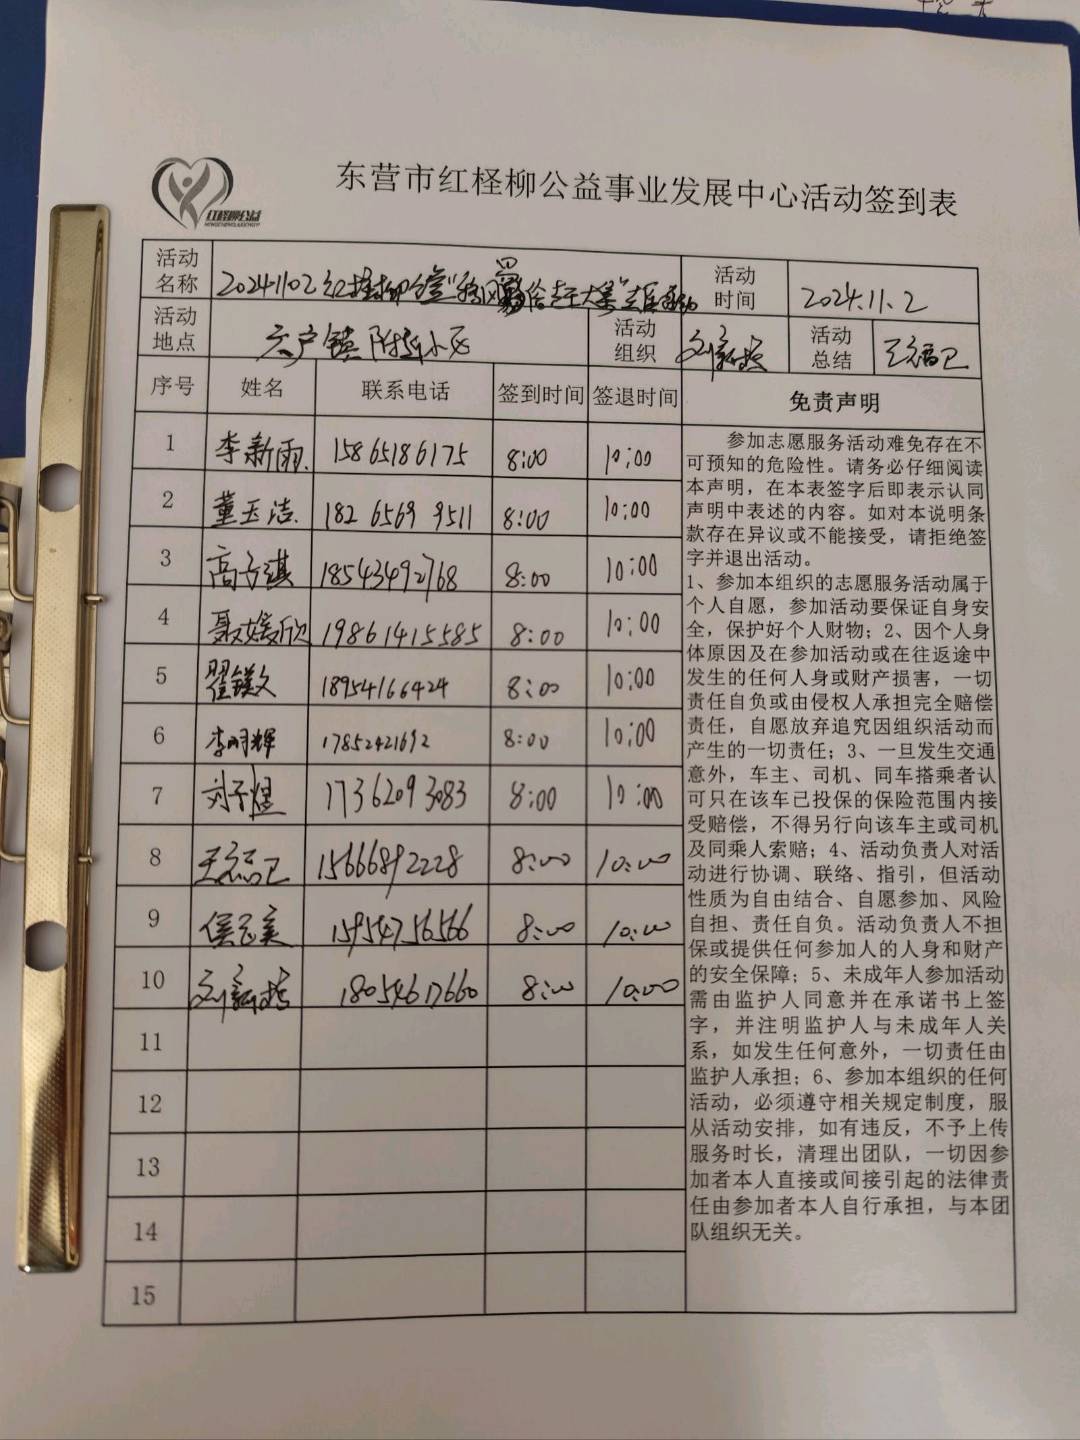 红柽柳公益
东营市红柽柳公益事业发展中心活动签到表
活动名称 20241102红柽柳公益
活动时间 2024.11.2
活动地点 六户镇 小区
活动组织
活动总结
序号 姓名 联系电话 签到时间 签退时间 免责声明
1 李新雨 15865186175 8:00 10:00
2 董玉洁 182 6569 9511 8:00 10:00
3 高子淇 18543492768 8:00 10:00
4 聂媛欣 19861415585 8:00 10:00
5 翟镁文 18954166424 8:00 10:00
6 李明辉 17852421692 8:00 10:00
7 刘子煜 17362093083 8:00 10:00
8 15666892228 8:00 10:00
9 15954756566 8:00 10:00
10 18054617660 8:00 10:00
11
12
13
14
15
参加志愿服务活动难免存在不
可预知的危险性。请务必仔细阅读
本声明，在本表签字后即表示认同
声明中表述的内容。如对本说明条
款存在异议或不能接受，请拒绝签
字并退出活动。
1、参加本组织的志愿服务活动属于
个人自愿，参加活动要保证自身安
全，保护好个人财物；2、因个人身
体原因及在参加活动或在往返途中
发生的任何人身或财产损害，一切
责任自负或由侵权人承担完全赔偿
责任，自愿放弃追究因组织活动而
产生的一切责任；3、一旦发生交通
意外，车主、司机、同车搭乘者认
可只在该车已投保的保险范围内接
受赔偿，不得另行向该车主或司机
及同乘人索赔；4、活动负责人对活
动进行协调、联络、指引，但活动
性质为自由结合、自愿参加、风险
自担、责任自负。活动负责人不担
保或提供任何参加人的人身和财产
的安全保障；5、未成年人参加活动
需由监护人同意并在承诺书上签
字，并注明监护人与未成年人关
系，如发生任何意外，一切责任由
监护人承担；6、参加本组织的任何
活动，必须遵守相关规定制度，服
从活动安排，如有违反，不予上传
服务时长，清理出团队，一切因参
加者本人直接或间接引起的法律责
任由参加者本人自行承担，与本团
队组织无关。